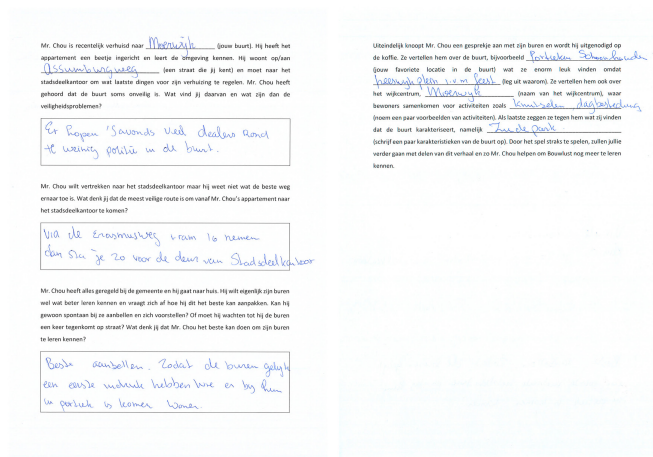 Mr. Chou is recentelijk verhuisd naar Moerwijk (jouw buurt). Hij heeft het
appartement een beetje ingericht en leert de omgeving kennen. Hij woont op/aan
Assumburgweg (een straat die jij kent) en moet naar het
stadsdeelkantoor om wat laatste dingen voor zijn verhuizing te regelen. Mr. Chou heeft
gehoord dat de buurt soms onveilig is. Wat vind jij daarvan en wat zijn dan de
veiligheidsproblemen?
Er lopen 's avonds veel dealers rond
+ weinig politie in de buurt.
Mr. Chou wilt vertrekken naar het stadsdeelkantoor maar hij weet niet wat de beste weg
ernaar toe is. Wat denk jij dat de meest veilige route is om vanaf Mr. Chou's appartement naar
het stadsdeelkantoor te komen?
Via de Erasmusweg tram 16 nemen
dan sta je zo voor de deur van Stadsdeelkantoor
Mr. Chou heeft alles geregeld bij de gemeente en hij gaat naar huis. Hij wilt eigenlijk zijn buren
wel wat beter leren kennen en vraagt zich af hoe hij dit het beste kan aanpakken. Kan hij
gewoon spontaan bij ze aanbellen en zich voorstellen? Of moet hij wachten tot hij de buren
een keer tegenkomt op straat? Wat denk jij dat Mr. Chou het beste kan doen om zijn buren
te leren kennen?
Beste aanbellen. Zodat de buren gelijk
een eerste indruk hebben hoe en bij hun
in portiek is komen wonen.
Uiteindelijk knoopt Mr. Chou een gesprekje aan met zijn buren en wordt hij uitgenodigd op
de koffie. Ze vertellen hem over de buurt, bijvoorbeeld Portieken
(jouw favoriete locatie in de buurt) wat ze enorm leuk vinden omdat
heeswijkplein i.v.m feest (leg uit waarom). Ze vertellen hem ook over
het wijkcentrum, Moerwijk (naam van het wijkcentrum), waar
bewoners samenkomen voor activiteiten zoals knutselen dagbesteding
(noem een paar voorbeelden van activiteiten). Als laatste zeggen ze tegen hem wat zij vinden
dat de buurt karakteriseert, namelijk Zuiderpark.
(schrijf een paar karakteristieken van de buurt op). Door het spel straks te spelen, zullen jullie
verder gaan met delen van dit verhaal en zo Mr. Chou helpen om Bouwlust nog meer te leren
kennen.